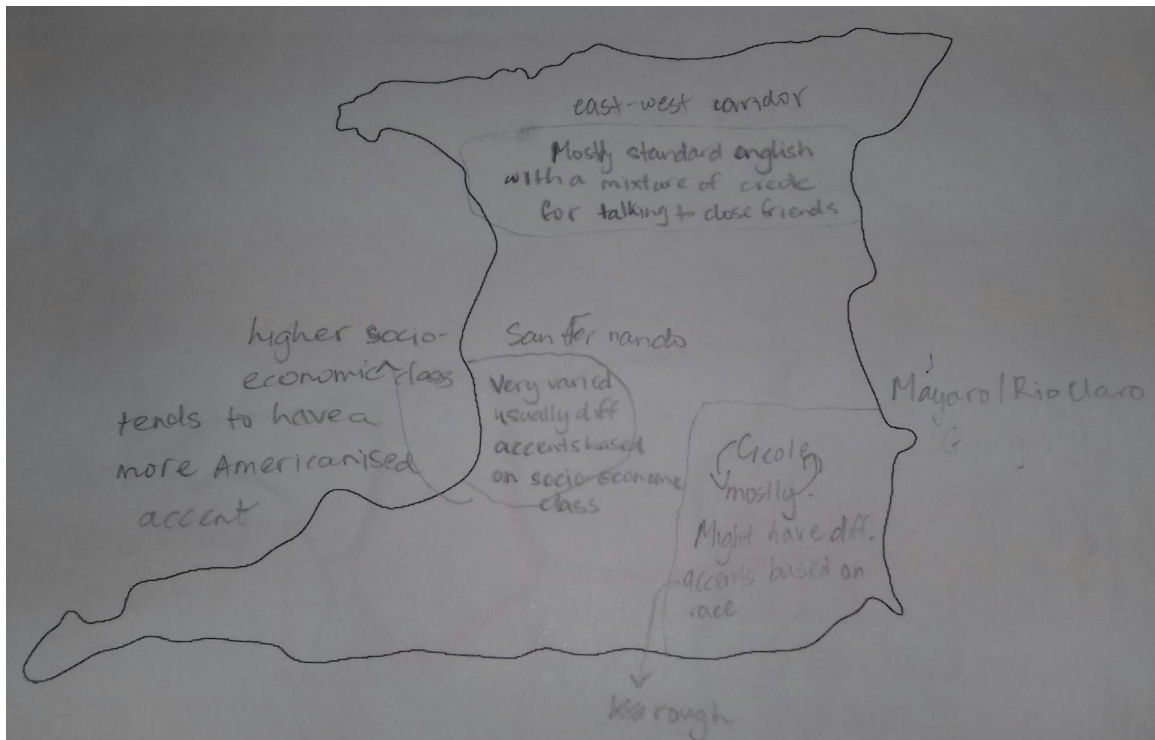 east-west corridor
Mostly standard english
with a mixture of creole
for talking to close friends
higher socio-
economic class
tends to have a
more Americanised
accent
San Fernando
Very varied
usually diff
accents based
on socio-economic
class
Mayaro/Rio Claro
Creole
mostly.
Might have diff.
accents based on
race
rough